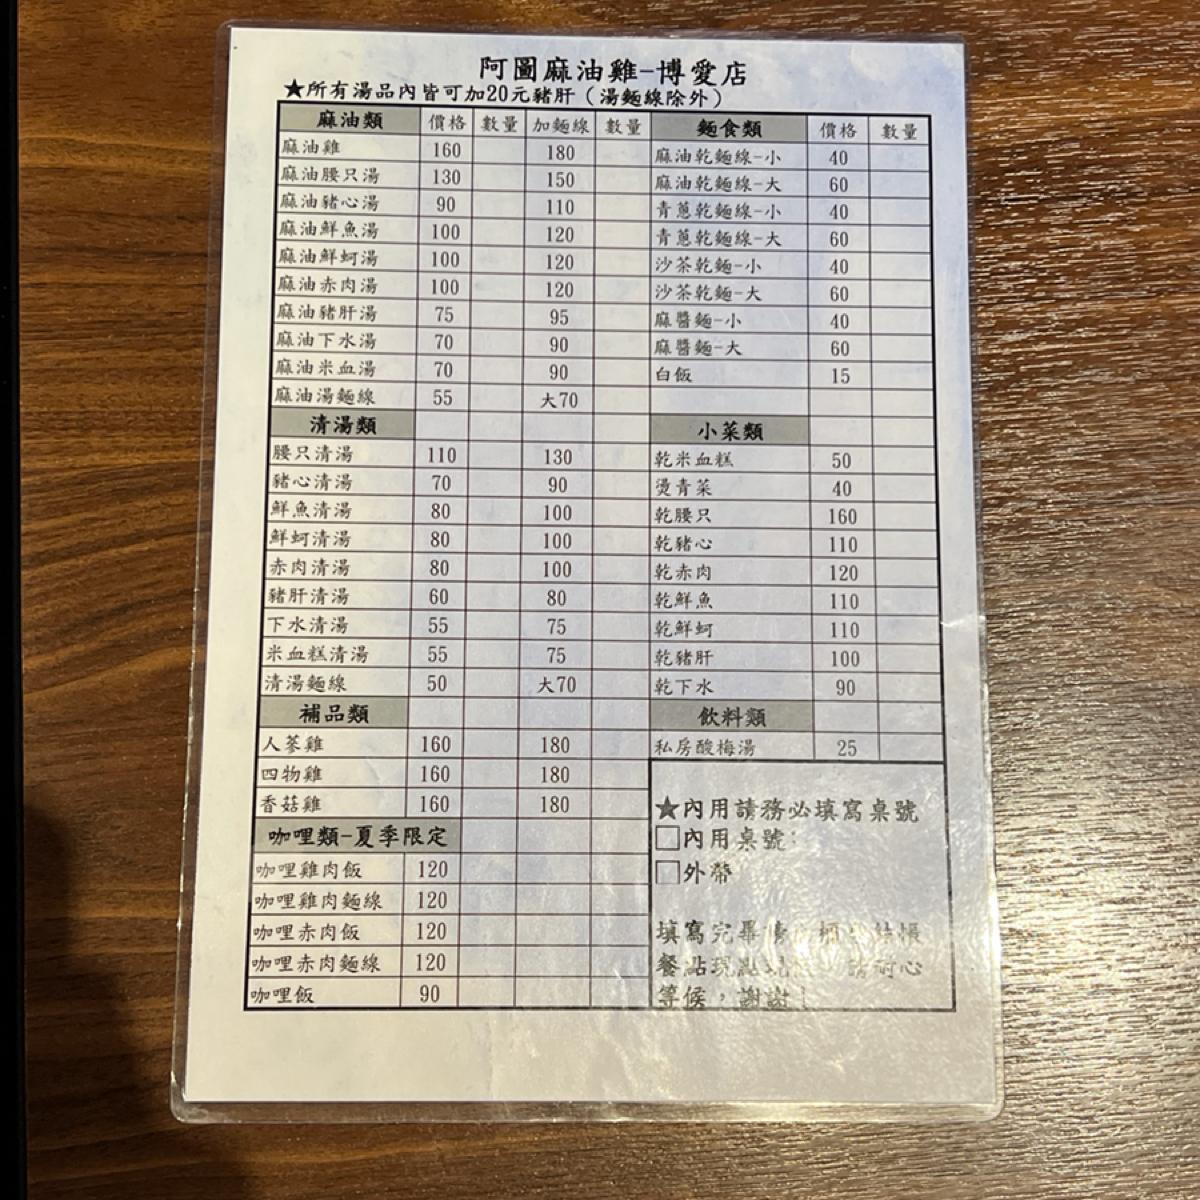 阿圖麻油雞-博愛店
★所有湯品內皆可加20元豬肝（湯麵線除外）
麻油類 價格 數量 加麵線 數量
麻油雞 160 180
麻油腰只湯 130 150
麻油豬心湯 90 110
麻油鮮魚湯 100 120
麻油鮮蚵湯 100 120
麻油赤肉湯 100 120
麻油豬肝湯 75 95
麻油下水湯 70 90
麻油米血湯 70 90
麻油湯麵線 55 大70
清湯類
腰只清湯 110 130
豬心清湯 70 90
鮮魚清湯 80 100
鮮蚵清湯 80 100
赤肉清湯 80 100
豬肝清湯 60 80
下水清湯 55 75
米血糕清湯 55 75
清湯麵線 50 大70
補品類
人蔘雞 160 180
四物雞 160 180
香菇雞 160 180
咖哩類-夏季限定
咖哩雞肉飯 120
咖哩雞肉麵線 120
咖哩赤肉飯 120
咖哩赤肉麵線 120
咖哩飯 90
麵食類 價格 數量
麻油乾麵線-小 40
麻油乾麵線-大 60
青蔥乾麵線-小 40
青蔥乾麵線-大 60
沙茶乾麵-小 40
沙茶乾麵-大 60
麻醬麵-小 40
麻醬麵-大 60
白飯 15
小菜類
乾米血糕 50
燙青菜 40
乾腰只 160
乾豬心 110
乾赤肉 120
乾鮮魚 110
乾鮮蚵 110
乾豬肝 100
乾下水 90
飲料類
私房酸梅湯 25
★內用請務必填寫桌號
□內用桌號:
□外帶
填寫完畢 結帳
餐點現點 請耐心
等候，謝謝!